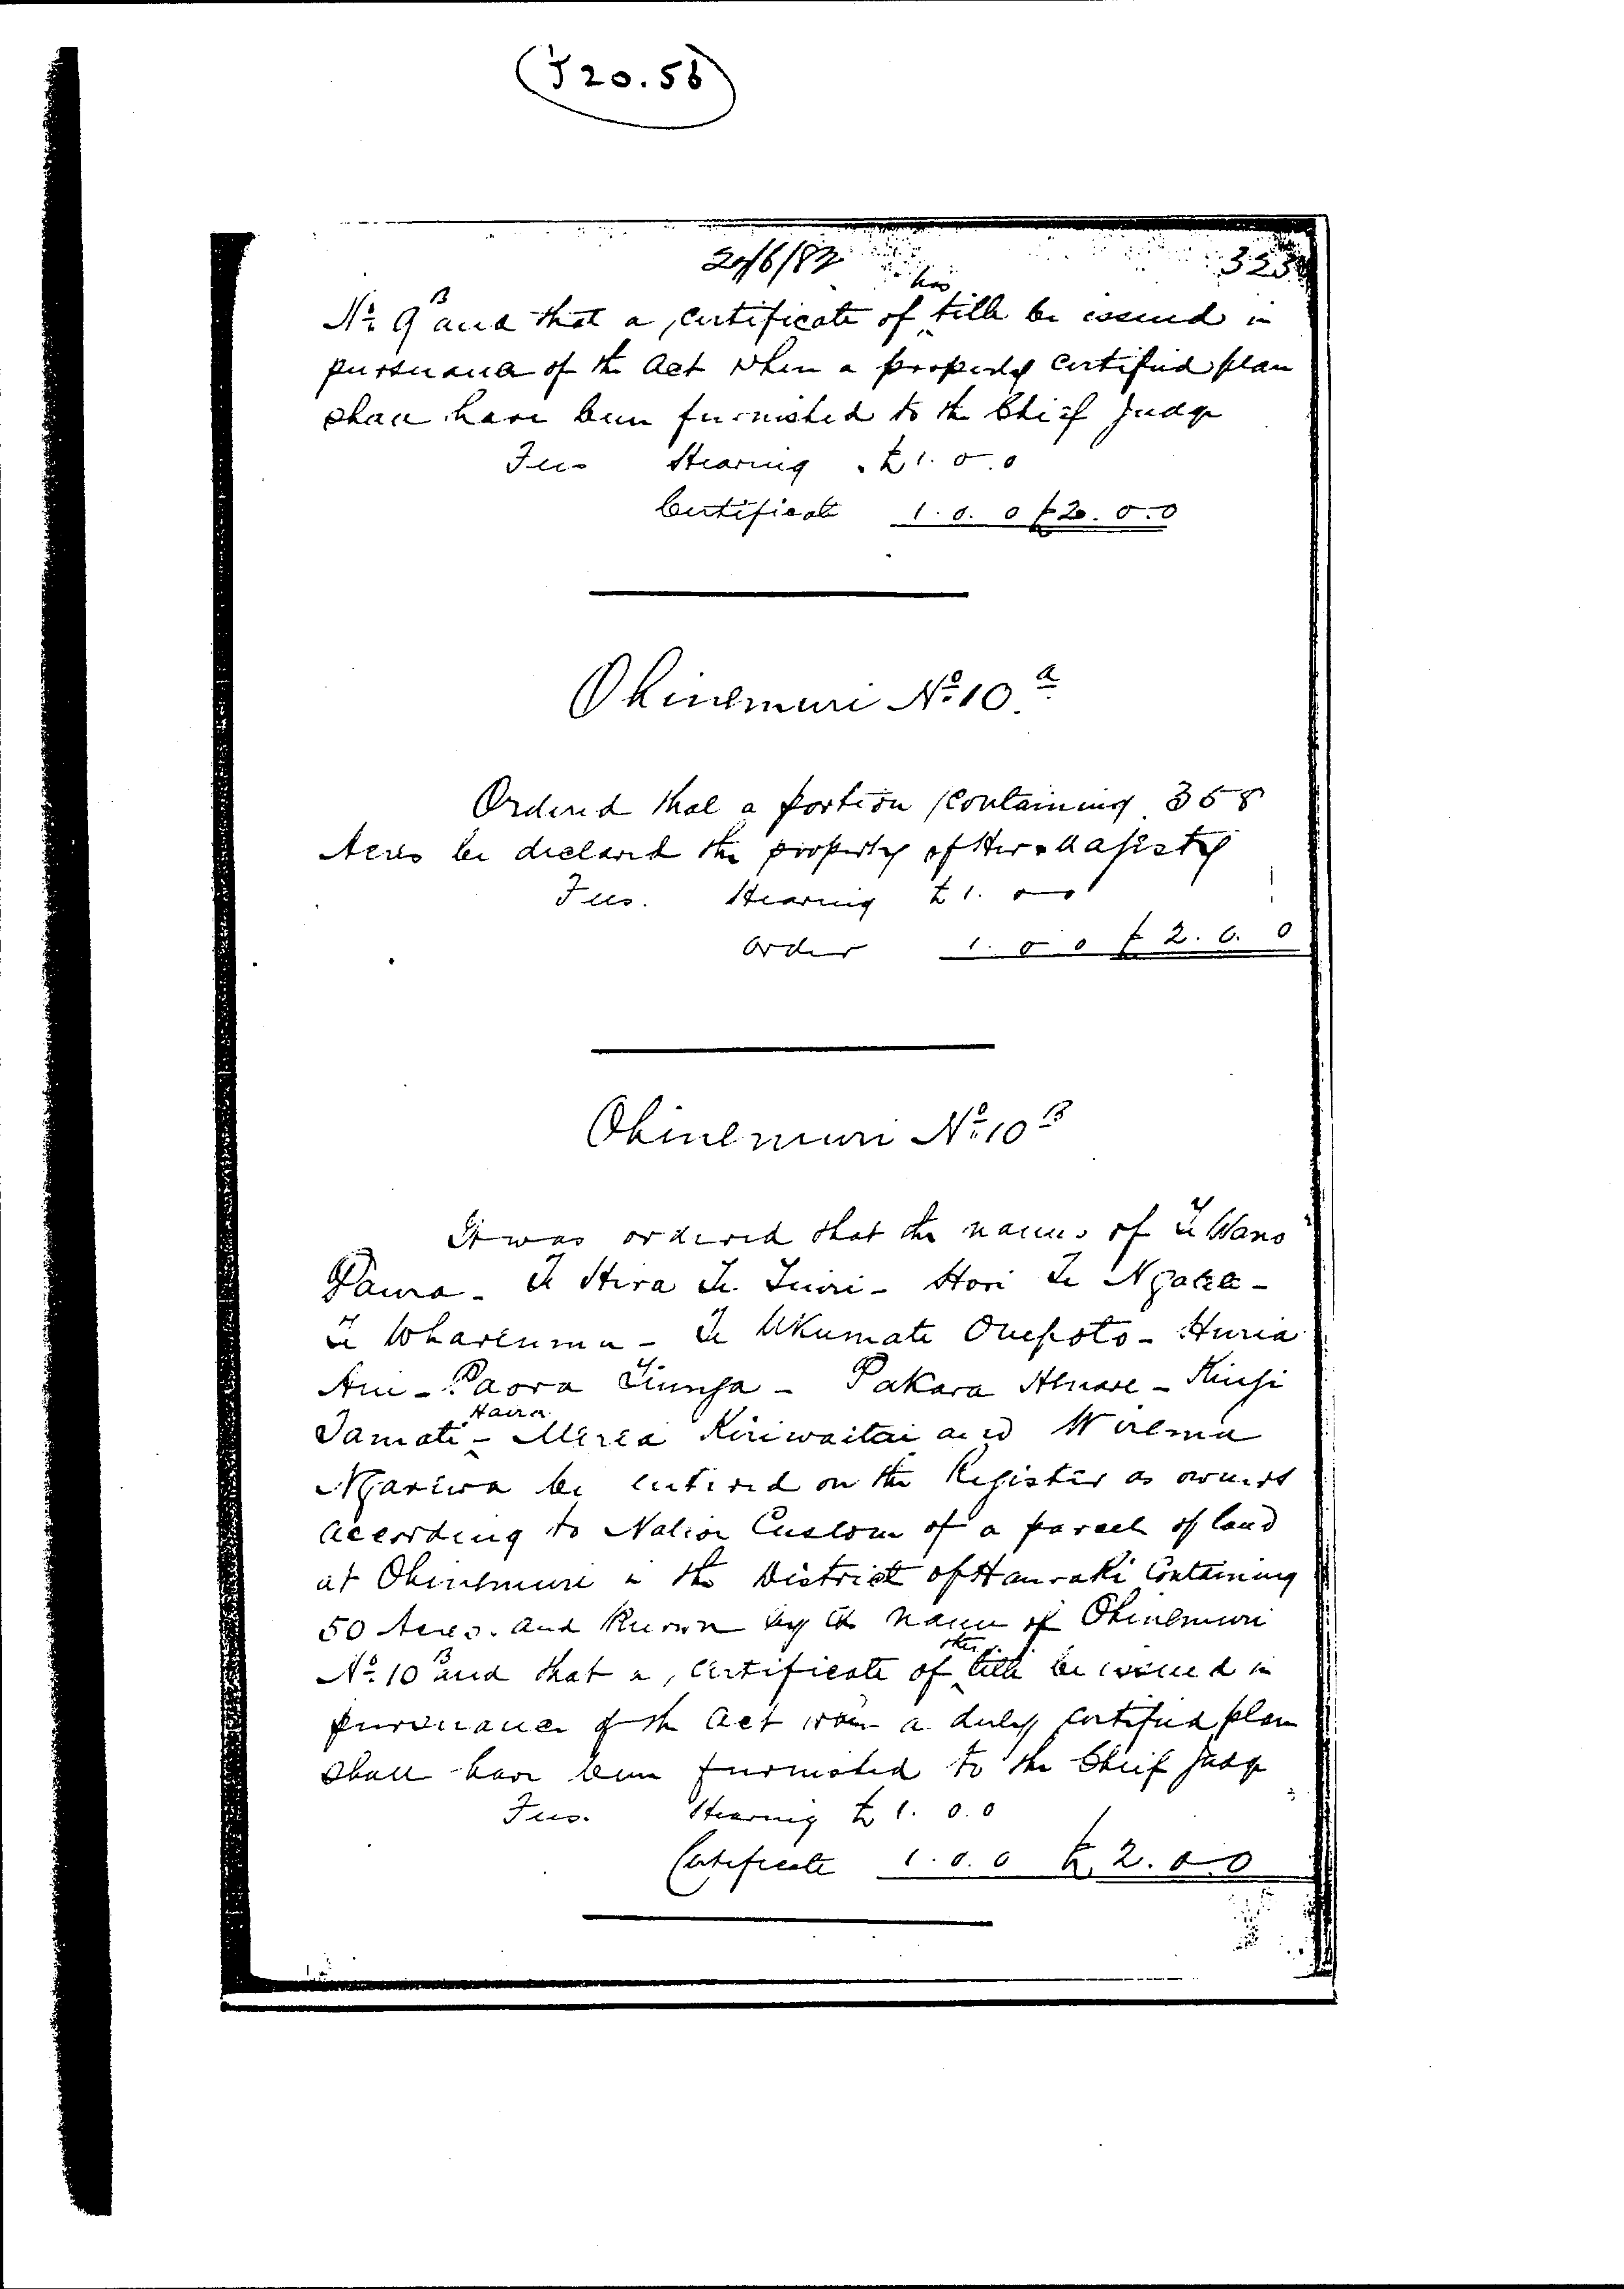 (J20.56)
20/6/82 323
his
No 9B and that a certificate of title be issued in
pursuance of the Act when a properly certified plan
shall have been furnished to the Chief Judge
Fees Hearing £1.0.0
Certificate 1.0.0 £2.0.0
Ohinemuri No 10a
Ordered that a portion containing 358
Acres be declared the property of Her Majesty
Fees. Hearing £1.0.0
Order 1.0.0 £2.0.0
Ohinemuri No 10B
It was ordered that the names of Te Wano
Te Hira Te Tuiri - Hori Te
Te - Te Ukumate Onepoto - Huria
- Paora Tiunga - Pakara -
Haira
Tamati - Merea Kiriwaitai and Wirema
be entered on the Register as owners
according to Native Custom of a parcel of land
at Ohinemuri in the District of Hauraki containing
50 Acres. and known by the name of Ohinemuri
their
No 10B and that a certificate of title be issued in
pursuance of the Act when a duly certified plan
shall have been furnished to the Chief Judge
Fees. Hearing £1.0.0
Certificate 1.0.0 £2.0.0